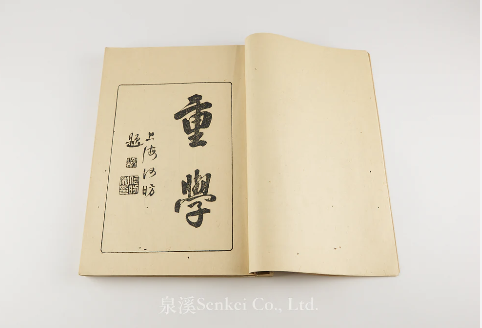 重學
上海沙昉
題
泉溪Senkei Co., Ltd.